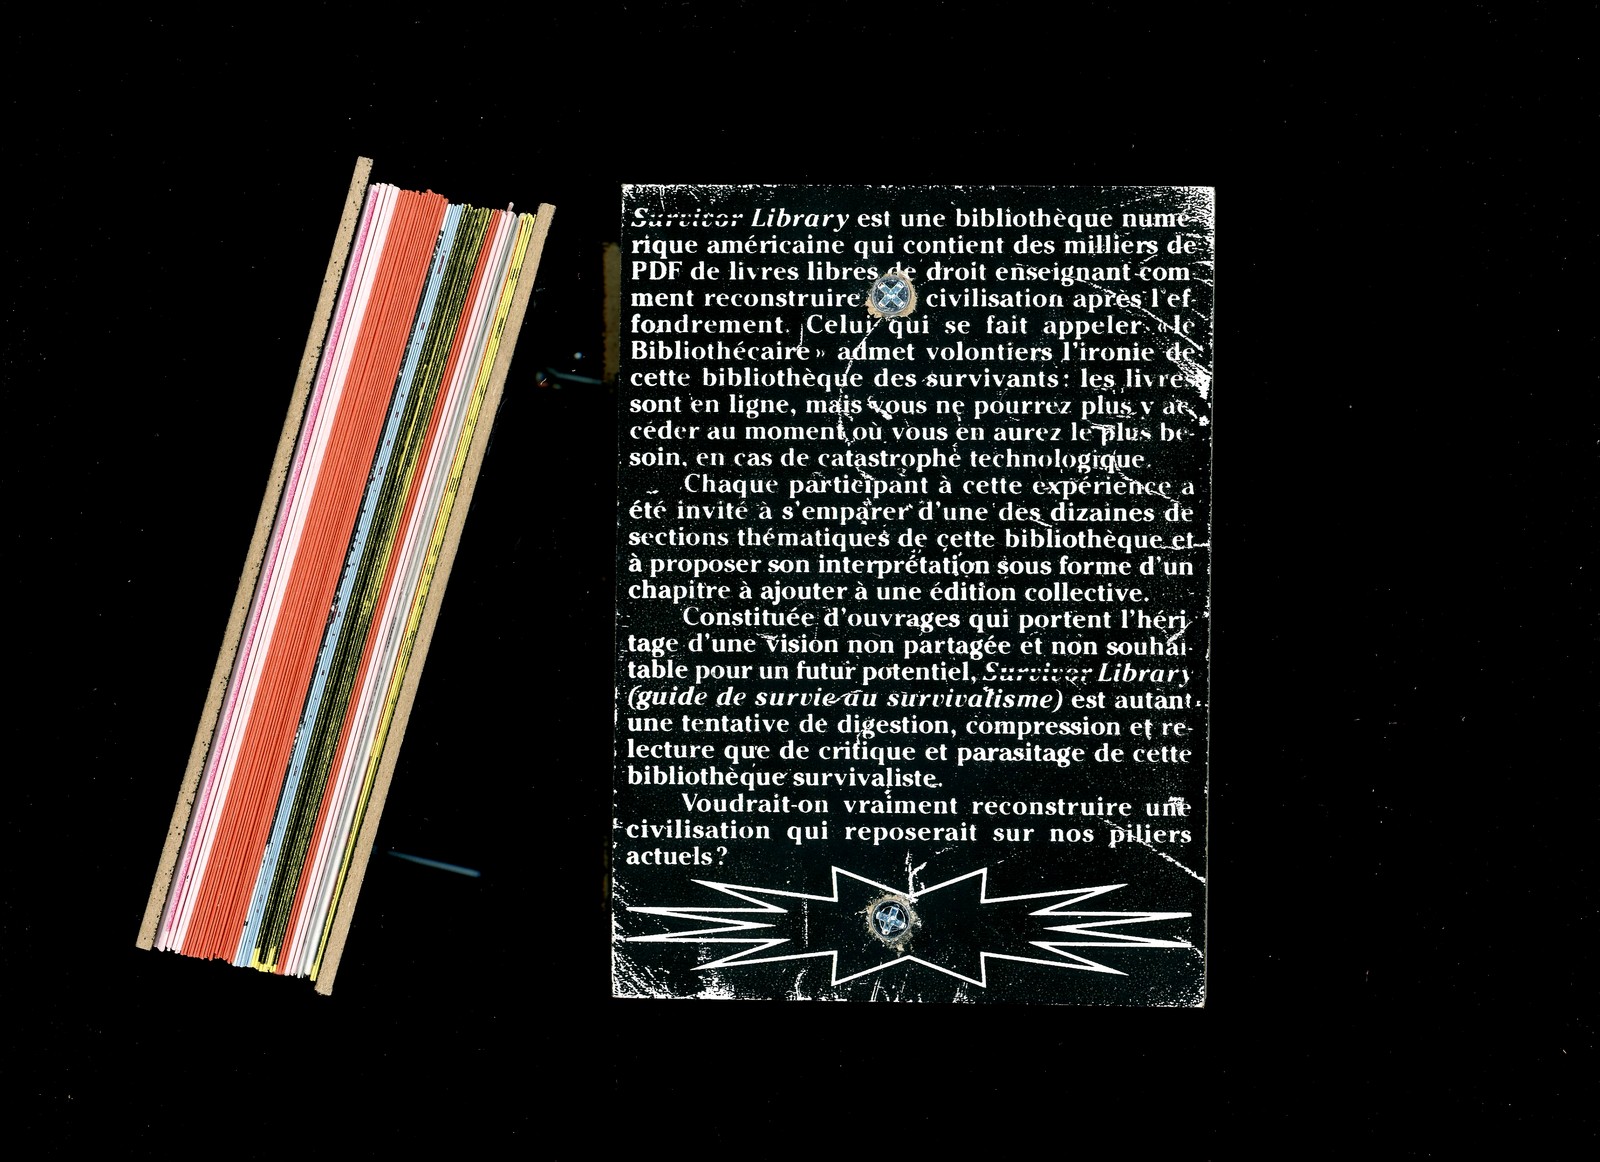 Survivor Library est une bibliothèque numé-
rique américaine qui contient des milliers de
PDF de livres libres de droit enseignant com-
ment reconstruire civilisation après l'ef-
fondrement. Celui qui se fait appeler «le
Bibliothécaire» admet volontiers l'ironie de
cette bibliothèque des survivants: les livres
sont en ligne, mais vous ne pourrez plus y ac-
céder au moment où vous en aurez le plus be-
soin, en cas de catastrophe technologique.
Chaque participant à cette expérience a
été invité à s'emparer d'une des dizaines de
sections thématiques de cette bibliothèque et
à proposer son interprétation sous forme d'un
chapitre à ajouter à une édition collective.
Constituée d'ouvrages qui portent l'héri-
tage d'une vision non partagée et non souhai-
table pour un futur potentiel, Survivor Library
(guide de survie au survivalisme) est autant
une tentative de digestion, compression et re-
lecture que de critique et parasitage de cette
bibliothèque survivaliste.
Voudrait-on vraiment reconstruire une
civilisation qui reposerait sur nos piliers
actuels?